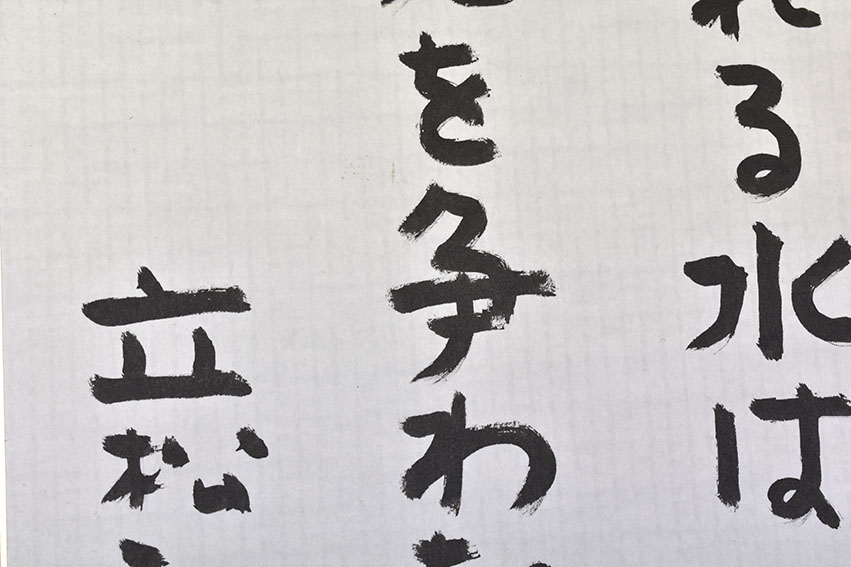 れる水は
を争わ
立松